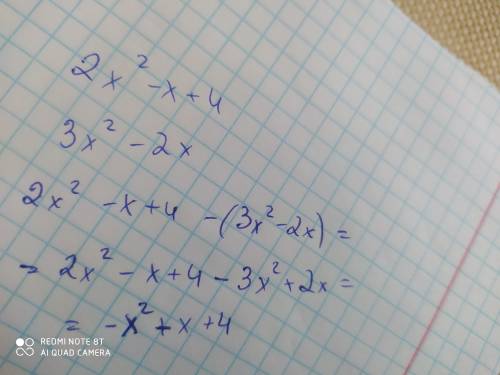 2x² -x+4
3x² -2x
2x² -x+4 -(3x²-2x) =
= 2x² - x+4 - 3x² + 2x =
= -x² + x +4
REDMI NOTE 8T
AI QUAD CAMERA